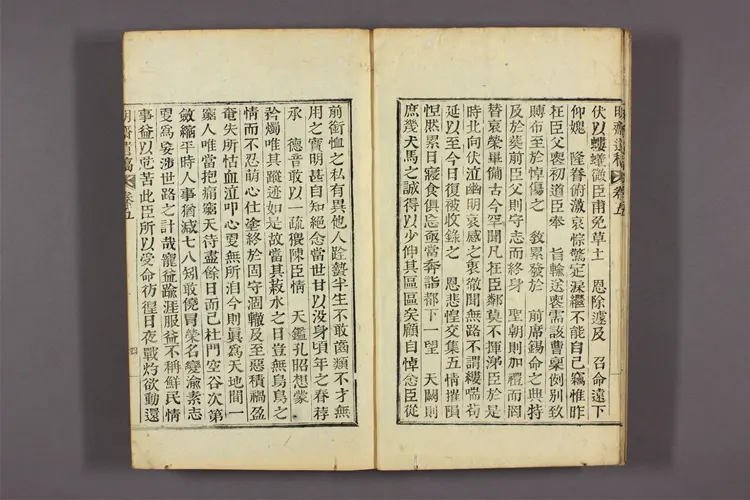 明齋遺稿 卷五
伏以螻蟻微臣甫免草土 恩除遽及 召命遠下
仰媿 隆眷俯激哀悰驚定淚繼不能自己竊惟昨
在臣父喪初道臣奉 旨輸送喪需該曹稟例別致
賻布至於悼傷之 敎累發於 前席錫命之典特
及於葬前臣父則守志而終身 聖朝則加禮而罔
替哀榮畢備古今罕聞凡在臣鄰莫不揮涕臣於是
時北向伏泣幽明哀感之衷徹聞無路不謂縷喘苟
延以至今日復被收錄之 恩悲惶交集五情摧隕
怛然累日寢食俱忘亟當奔詣都下一望 天闕則
庶幾犬馬之誠得以少伸其區區矣顧自悼念臣從
前銜恤之私有異他人跧蟄半生不敢齒類不才無
用之實明甚自知絕念當世甘以沒身頃年之春荐
承 德音敢以一疏猥陳臣情 天鑑孔昭想蒙
矜燭唯其蹤迹如是故當其菽水之日豈無烏鳥之
情而不忍萌心仕塗終於固守涸轍及至惡積禍盈
奄失所怙血泣叩心更無所洎今則眞爲天地間一
窮人唯當抱痛窮天待盡餘日而己杜門空谷次第
斂縮平時人事猶減七八矧敢僥冒榮名變渝素志
更爲妄涉世路之計哉寵益踰涯服益不稱鮮民情
事益以危苦此臣所以受命彷徨日夜戰灼欲動還
明齋遺稿 卷五 四